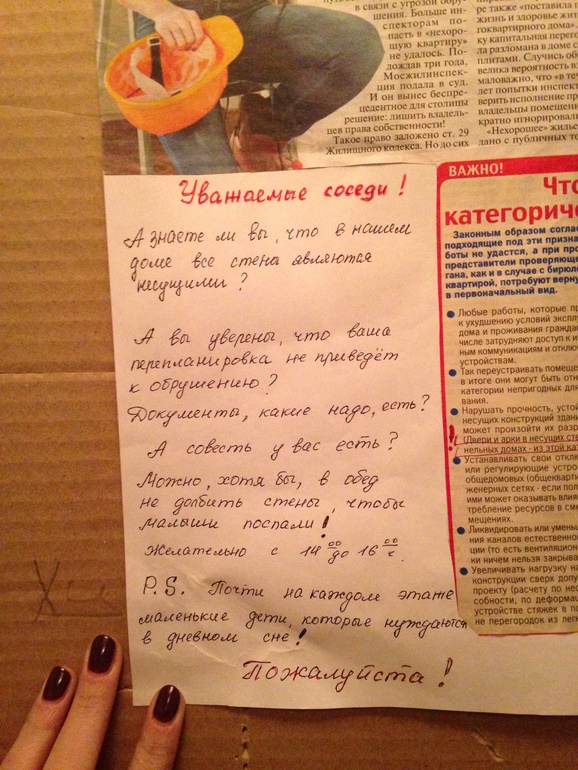 в связи с угрозой обру-
шения. Больше ин-
спекторам по-
пасть в «нехоро-
шую квартиру»
не удалось. По-
дождав три года,
Мосжилинспек-
ция подала в суд.
И он вынес беспре-
цедентное для столицы
решение: лишить владель-
цев права собственности!
Такое право заложено ст. 29
Жилищного кодекса. Но до сих
ре также «поставила
жизнь и здоровье жите
гоквартирного дома»
ку капитальная перего
ла разломана в доме с
плитами. Случись об
велика вероятность
маловажно, что «в те
лет попытки инспек
верить исполнение пр
владельцы помещени
кратно игнорировали
«Нехорошее» жилье
дано с публичных то
Уважаемые соседи!
А знаете ли вы, что в нашем
доме все стены являются
несущими?
А вы уверены, что ваша
перепланировка не приведёт
к обрушению?
Документы, какие надо, есть?
А совесть у вас есть?
Можно, хотя бы, в обед
не долбить стены, чтобы
малыши поспали!
Желательно с 14 00 до 16 00 ч.
P.S. Почти на каждом этаже
маленькие дети, которые нуждаются
в дневном сне!
Пожалуйста!
ВАЖНО!
Что
категориче
Законным образом соглас
подходящие под эти призна
боты не удастся, а при про
представители проверяюще
гана, как и в случае с бирюл
квартирой, потребуют верну
в первоначальный вид.
Любые работы, которые пр
к ухудшению условий экспл
дома и проживания граждан
числе затрудняют доступ к и
ным коммуникациям и отклю
устройствам.
Так переустраивать помеще
в итоге они могут быть отн
категории непригодных для
вания.
Нарушать прочность, устой
несущих конструкций здани
может произойти их разр
(Двери и арки в несущих сте
нельных домах - из этой ка
Устанавливать свои отклю
или регулирующие устрой
общедомовых (общекварти
женерных сетях - если пол
ими может оказывать влия
требление ресурсов в см
мещениях.
Ликвидировать или умень
ния каналов естественно
ции (то есть вентиляцион
ки ничем нельзя закрыва
Увеличивать нагрузку на
конструкции сверх допу
проекту (расчету по нес
собности, по деформа
устройстве стяжек в по
не перегородок из легк